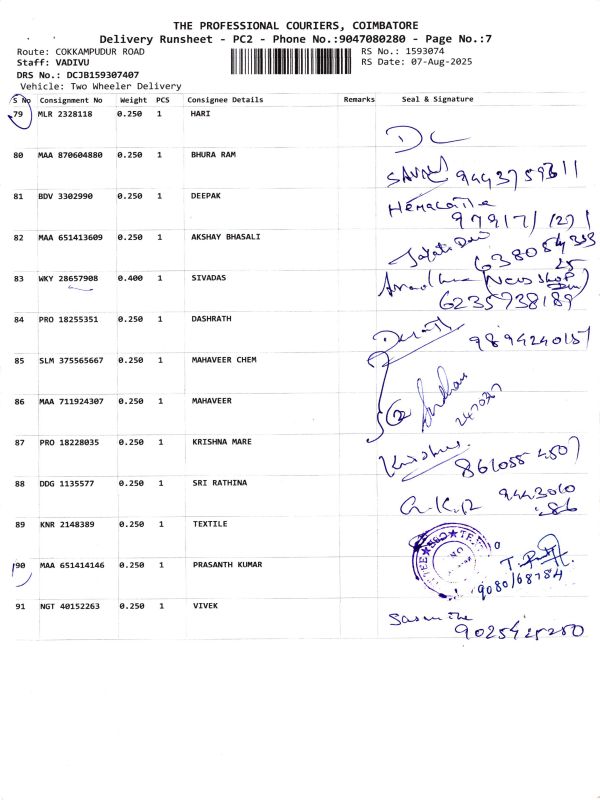 THE PROFESSIONAL COURIERS, COIMBATORE
Delivery Runsheet - PC2 - Phone No.:9047080280 - Page No.:7
Route: COKKAMPUDUR ROAD RS No.: 1593074
Staff: VADIVU RS Date: 07-Aug-2025
DRS No.: DCJB159307407
Vehicle: Two Wheeler Delivery
S No Consignment No Weight PCS Consignee Details Remarks Seal & Signature
79 MLR 2328118 0.250 1 HARI
DL
80 MAA 870604880 0.250 1 BHURA RAM
81 BDV 3302990 0.250 1 DEEPAK
Hemalatha
97917/1271
82 MAA 651413609 0.250 1 AKSHAY BHASALI
83 WKY 28657908 0.400 1 SIVADAS
6235938189
84 PRO 18255351 0.250 1 DASHRATH
9894240157
85 SLM 375565667 0.250 1 MAHAVEER CHEM
86 MAA 711924307 0.250 1 MAHAVEER
87 PRO 18228035 0.250 1 KRISHNA MARE
861055 4507
88 DDG 1135577 0.250 1 SRI RATHINA
G.K.R 9443010
86
89 KNR 2148389 0.250 1 TEXTILE
90 MAA 651414146 0.250 1 PRASANTH KUMAR
9080168784
91 NGT 40152263 0.250 1 VIVEK
9025425250